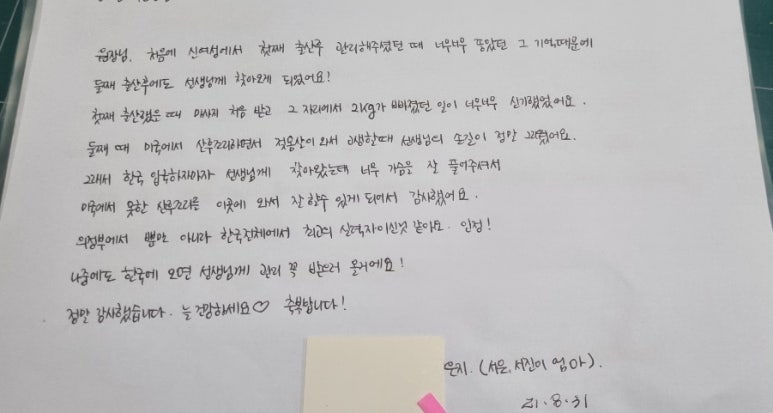 원장님. 처음에 신여성에서 첫째 출산후 관리해주셨던 때 너무너무 좋았던 그 기억때문에
둘째 출산후에도 선생님께 찾아오게 되었어요!
첫째 출산했을 때때 마사지 처음 받고 그 자리에서 2kg가 빠졌던 일이 너무너무 신기했었어요.
둘째 때 미국에서 산후조리하면서 젖몸살이 와서 고생한때 선생님의 손길이 정말 그리웠어요.
그래서 한국 입국하자마자 선생님께 찾아왔는데 너무 가슴을 잘 풀어주셔서
미국에서 못한 산후조리를 이곳에 와서 잘 할수 있게 되어서 감사했어요.
의정부에서 뿐만 아니라 한국전체에서 최고의 실력자이신것 같아요. 인정!
나중에도 한국에 오면 선생님께 관리 꼭 받으러 올거에요!
정말 감사했습니다. 늘 건강하세요♡ 축복합니다!
은지. (서은, 서진이 엄마).
21.8.31